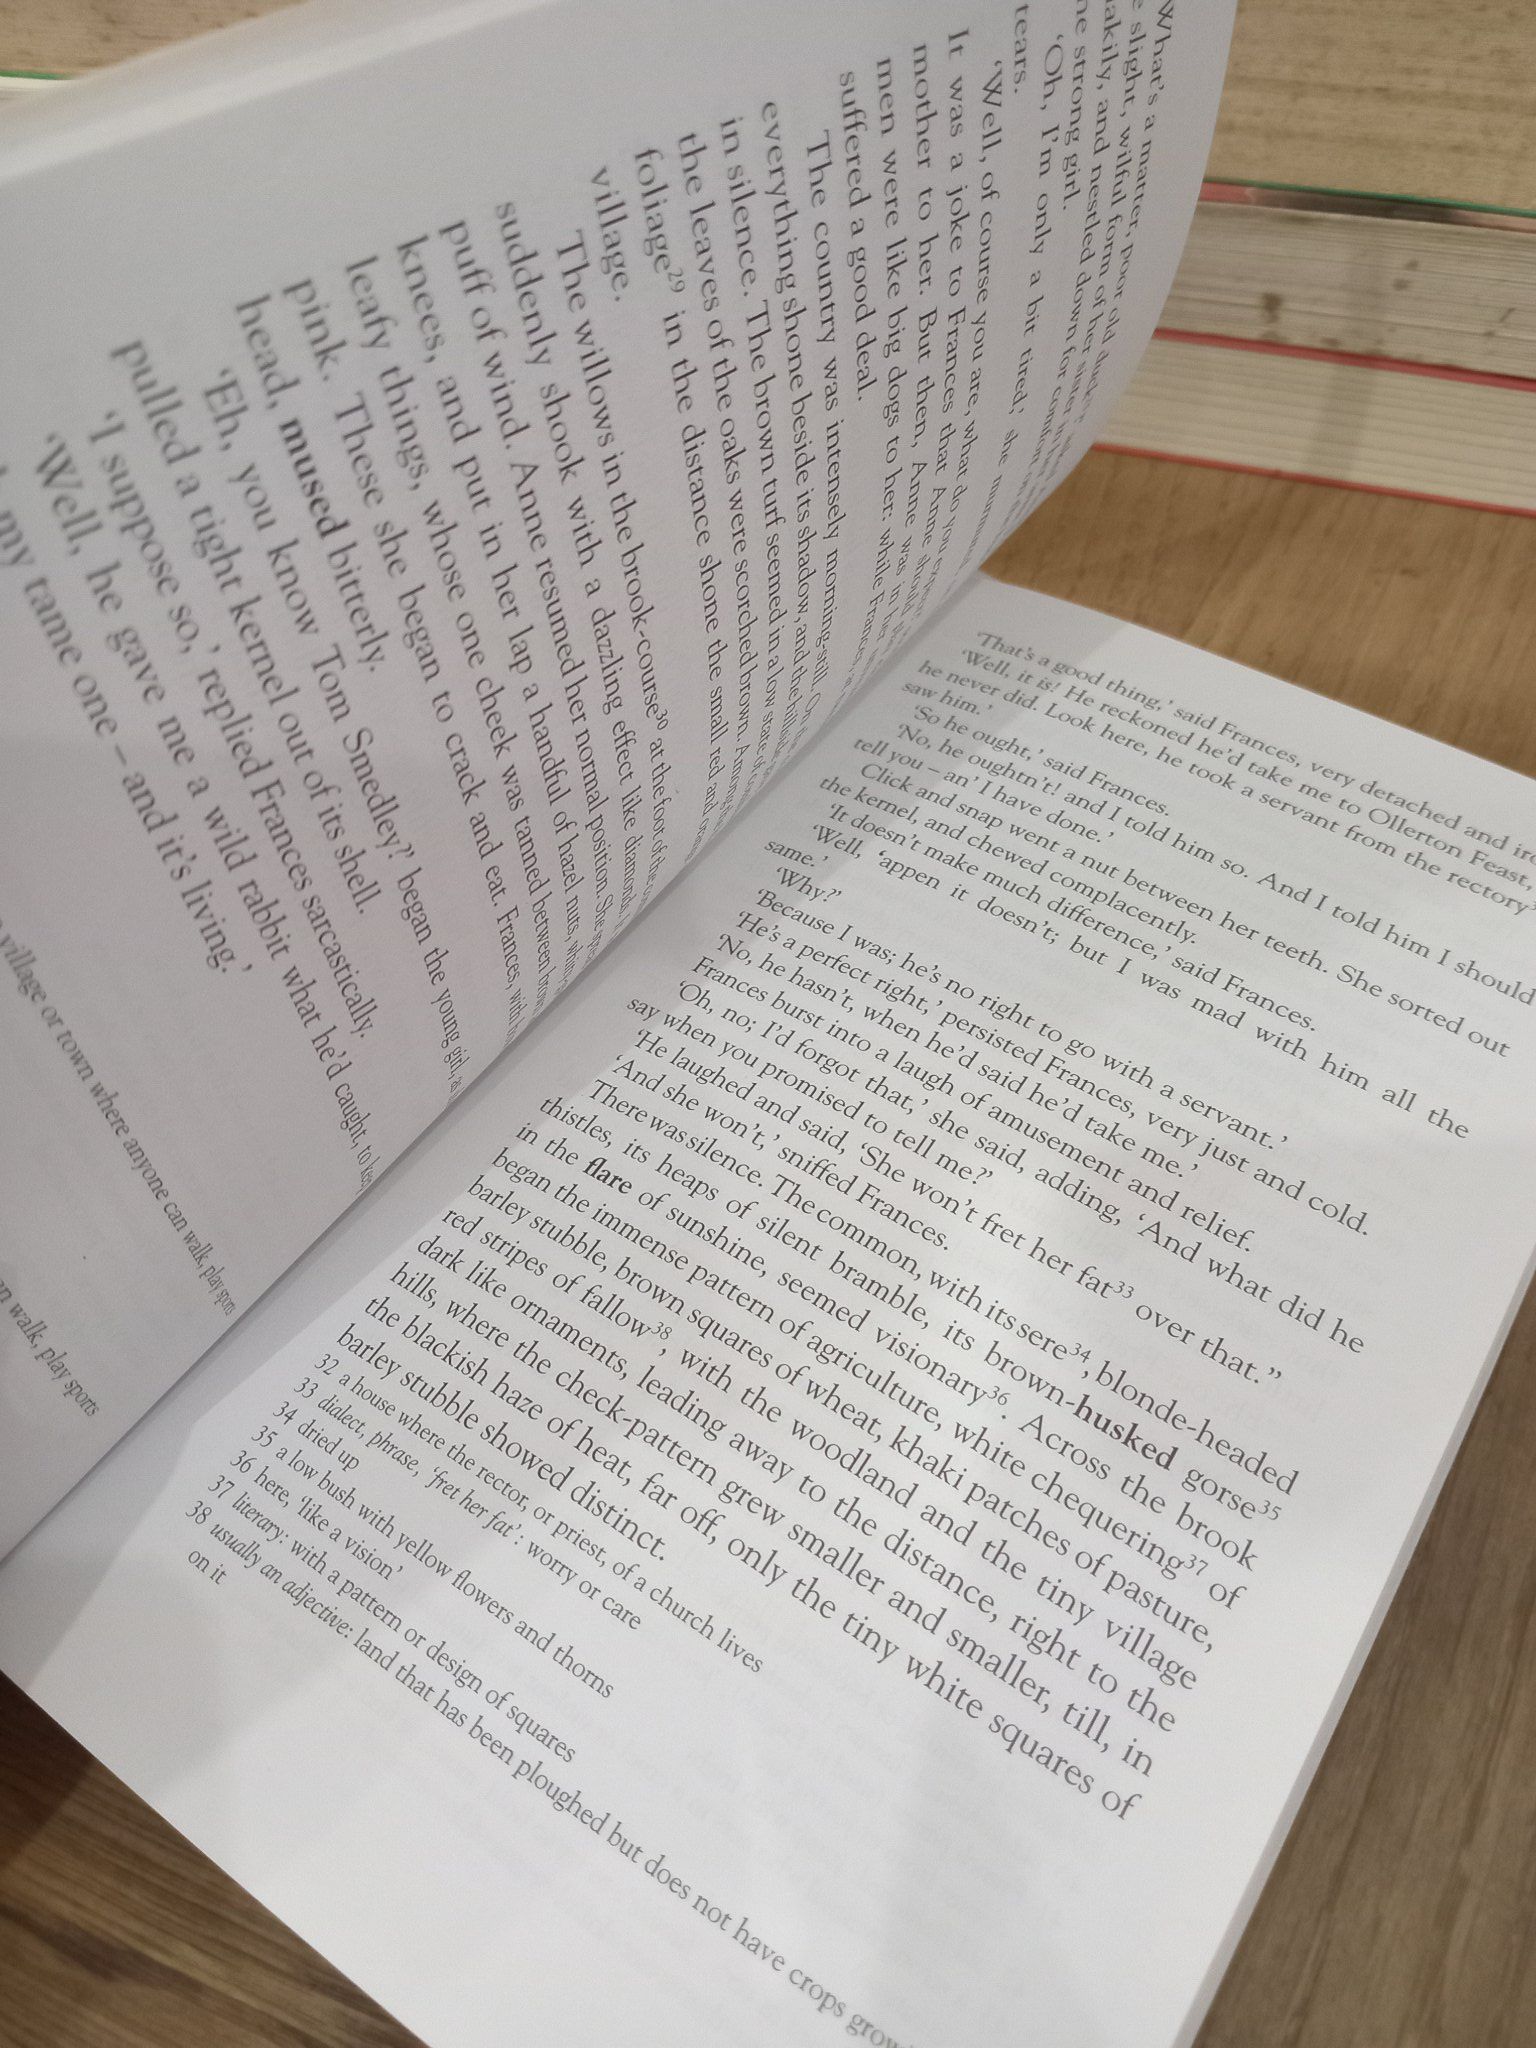 What's a matter, poor old duck
e slight, wilful form of her sister
akily, and nestled down for comfort
ne strong girl.
'Oh, I'm only a bit tired,' she murmured
tears.
'Well, of course you are, what do you
It was a joke to Frances that Anne should
mother to her. But then, Anne was in her
men were like big dogs to her: while Frances,
suffered a good deal.
The country was intensely morning-still. On the
everything shone beside its shadow, and the hillside
in silence. The brown turf seemed in a low state of
the leaves of the oaks were scorched brown. Among
foliage29 in the distance shone the small red and
village.
The willows in the brook-course30 at the foot of the
suddenly shook with a dazzling effect like diamonds.
puff of wind. Anne resumed her normal position. She
knees, and put in her lap a handful of hazel nuts,
leafy things, whose one cheek was tanned between brown
pink. These she began to crack and eat. Frances, with
head, mused bitterly.
'Eh, you know Tom Smedley?' began the young girl, as
pulled a tight kernel out of its shell.
'I suppose so,' replied Frances sarcastically.
'Well, he gave me a wild rabbit what he'd caught, to keep
my tame one – and it's living.'
village or town where anyone can walk, play sports
an walk, play sports
'That's a good thing,' said Frances, very detached and
'Well, it is! He reckoned he'd take me to Ollerton Feast,
he never did. Look here, he took a servant from the rectory
saw him.'
'So he ought,' said Frances.
'No, he oughtn't! and I told him so. And I told him I should
tell you – an' I have done.'
Click and snap went a nut between her teeth. She sorted out
the kernel, and chewed complacently.
'It doesn't make much difference,' said Frances.
'Well, 'appen it doesn't; but I was mad with him all the
same.'
'Why?'
'Because I was; he's no right to go with a servant.'
'He's a perfect right,' persisted Frances, very just and cold.
'No, he hasn't, when he'd said he'd take me.'
Frances burst into a laugh of amusement and relief.
'Oh, no; I'd forgot that,' she said, adding, 'And what did he
say when you promised to tell me?'
'He laughed and said, 'She won't fret her fat33 over that.''
'And she won't,' sniffed Frances.
There was silence. The common, with its sere34, blonde-headed
thistles, its heaps of silent bramble, its brown-husked gorse35
in the flare of sunshine, seemed visionary36. Across the brook
began the immense pattern of agriculture, white chequering37 of
barley stubble, brown squares of wheat, khaki patches of pasture,
red stripes of fallow38, with the woodland and the tiny village
dark like ornaments, leading away to the distance, right to the
hills, where the check-pattern grew smaller and smaller, till, in
the blackish haze of heat, far off, only the tiny white squares of
barley stubble showed distinct.
32 a house where the rector, or priest, of a church lives
33 dialect, phrase, 'fret her fat': worry or care
34 dried up
35 a low bush with yellow flowers and thorns
36 here, 'like a vision'
37 literary: with a pattern or design of squares
38 usually an adjective: land that has been ploughed but does not have crops
on it